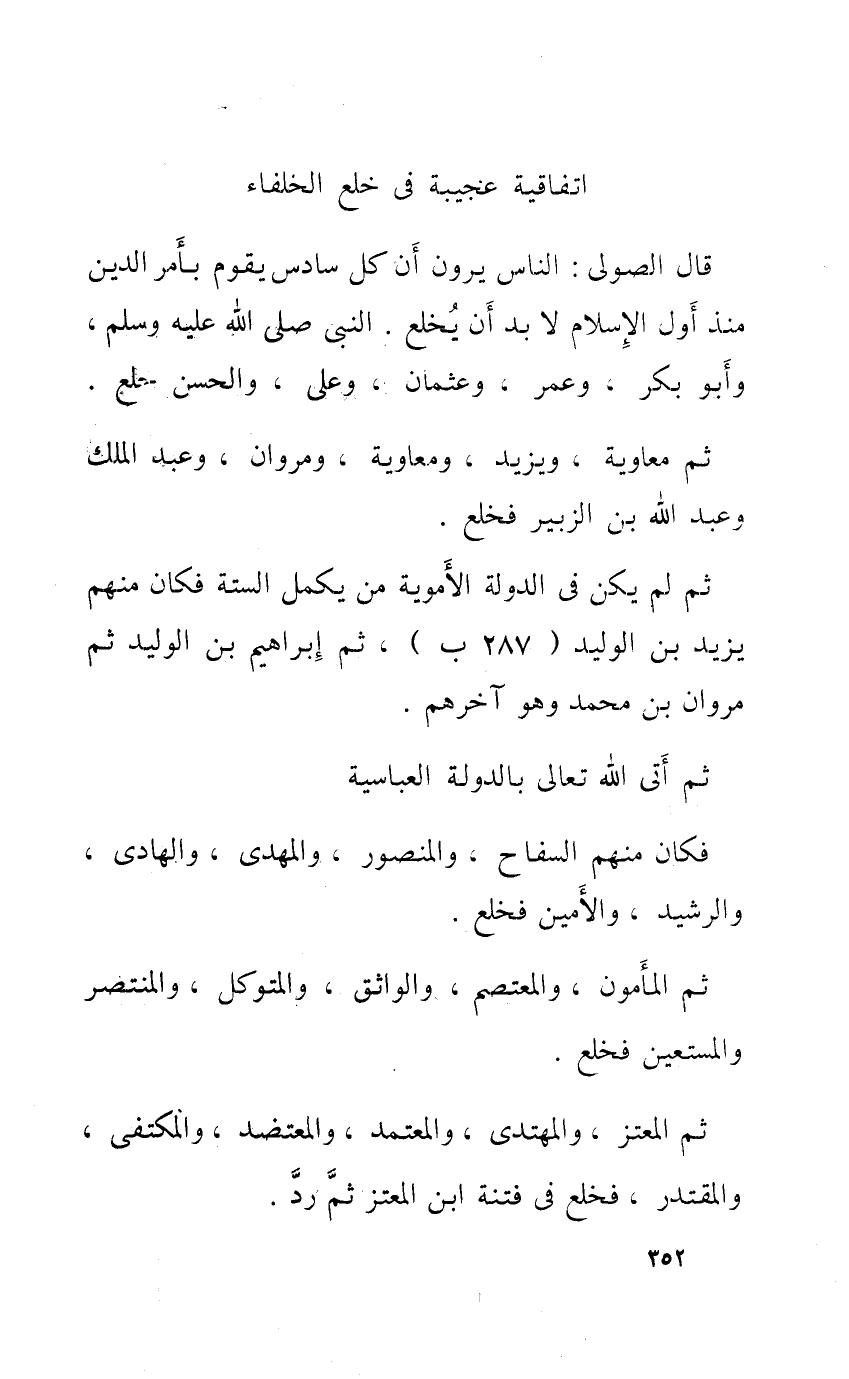 اتفاقية عجيبة فى خلع الخلفاء
قال الصولى : الناس يرون أَن كل سادس يقوم بأَمر الدين
منذ أَول الإِسلام لا بد أَن يُخلع . النبى صلى الله عليه وسلم ،
وأَبو بكر ، وعمر ، وعثمان ، وعلى ، والحسن خلع .
ثم معاوية ، ويزيد ، ومعاوية ، ومروان ، وعبد الملك
وعبد الله بن الزبير فخلع .
ثم لم يكن فى الدولة الأَموية من يكمل الستة فكان منهم
يزيد بن الوليد ( ٢٨٧ ب ) ، ثم إِبراهيم بن الوليد ثم
مروان بن محمد وهو آخرهم .
ثم أَتى الله تعالى بالدولة العباسية
فكان منهم السفاح ، والمنصور ، والمهدى ، والهادى ،
والرشيد ، والأَمين فخلع .
ثم المأَمون ، والمعتصم ، والواثق ، والمتوكل ، والمنتصر
والمستعين فخلع .
ثم المعتز ، والمهتدى ، والمعتمد ، والمعتضد ، والمكتفى ،
والمقتدر ، فخلع فى فتنة ابن المعتز ثمَّ ردَّ .
٣٥٢